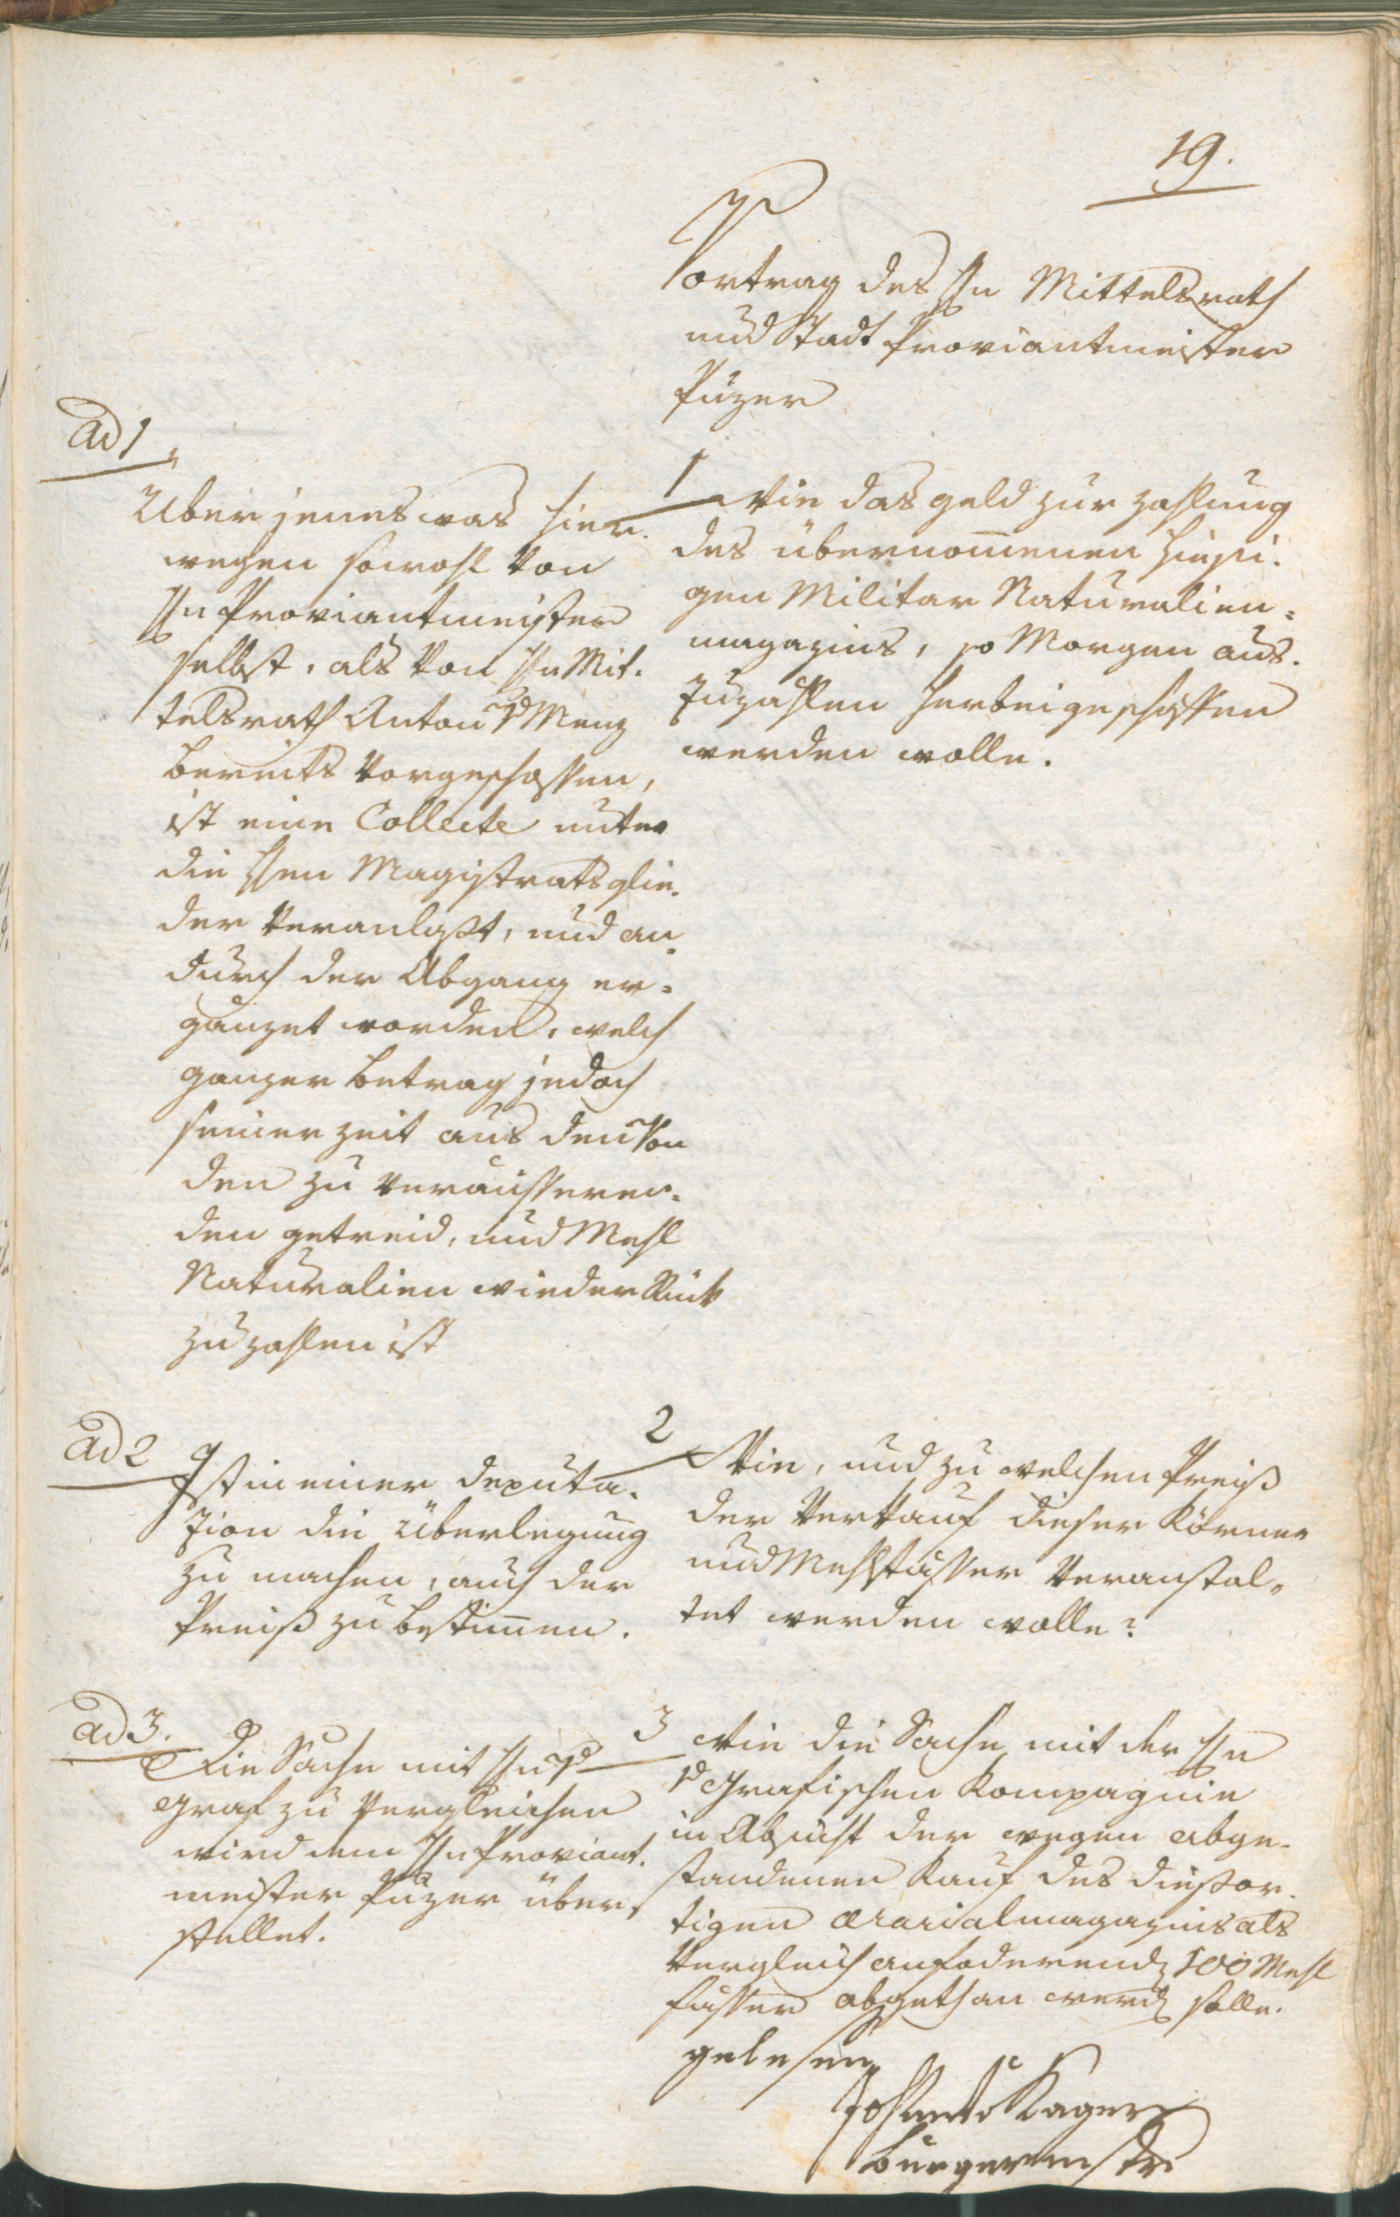 19.
Vortrag des Hn Mittelsrath
und Stadt Proviantmeister
Puzer
1 Wie das geld zur zahlung
des übernom̄enen hiesi.
gen Militar Naturalien=
magazins, so Morgen aus.
zuzahlen herbeigeschaffen
werden wolle.
ad 1
Uber jenes was hier.
wegen sowohl von
Hn Proviantmeister
selbst, als von Hn Mit.
telsrath Anton v Menz
bereits vorgeschossen,
ist eine Collecte unter
die Hen Magistratsglie.
der veranlaßt, und an
durch der Abgang er=
ganzet worden, welch
ganzer betrag jedoch
seiner zeit aus den von
den zu veräussern.
den getreid, und Mehl
Naturalien wieder Rück
zuzahlen ist
2 Wie, und zu welchen Preiß
der Verkauf dieser Körner
und Mehlfässer veranstal=
tet werden wolle?
ad 2
Ist in einer deputa.
zion die Überlegung
zu machen, auch der
Preiß zu bestim̄en.
3 Wie die Sache mit der Hn
v Grafischen Kompagnie
in Absicht der wegen abge.
standenen Kauf des diesor.
tigen Ærarialmagazins als
Vergleich anfoderend 100 Mehl
fässer abgethan werd solle.
ad 3.
Die Sache mit Hn v
Graf zu vergleichen
wird dem Hn Proviant.
meister Puzer über,
stellet.
gelesen
Kager
burgermstr